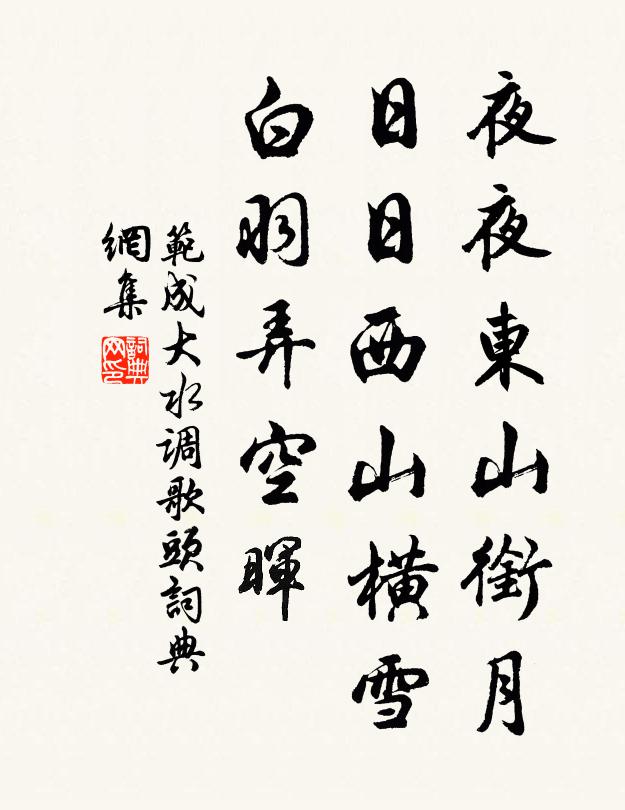 夜夜東山銜月
日日西山橫雪
白羽弄空暉
範成大水调歌頭詞典
網集
詞典
网印